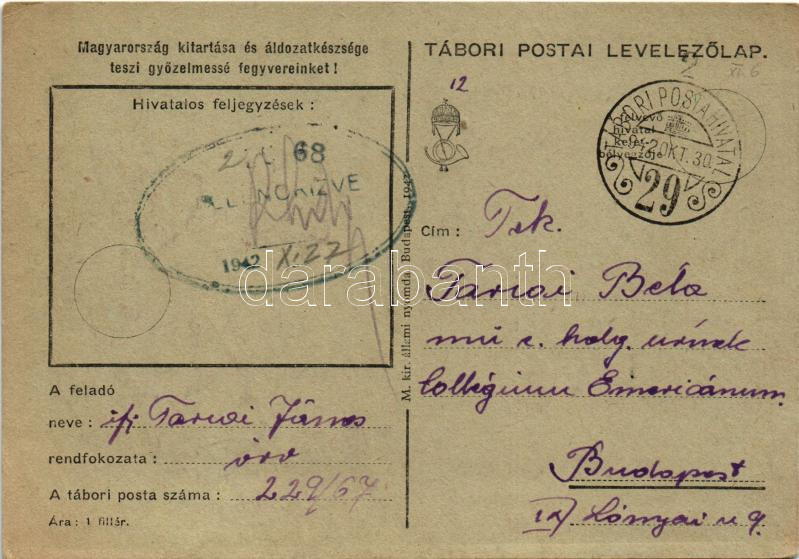 Magyarország kitartása és áldozatkészsége
teszi győzelmessé fegyvereinket!
Hivatalos feljegyzések :
68
ELLENŐRIZVE
1942 XI. 22
A feladó
neve : ifj Tarcai János
rendfokozata :
A tábori posta száma : 229/67
Ára : 1 fillér.
M. kir. állami nyomda, Budapest, 1942
TÁBORI POSTAI LEVELEZŐLAP.
12
2
XI. 6
felvevő
hivatal
kelet-
bélyegzője
TÁBORI POSTAHIVATAL
942 OKT. 30.
29
Cím : Tek.
Tarcai Béla
mű e. halg. urnak
Collégium Emericánum
Budapest
IX Lónyai u 9.
darabanth